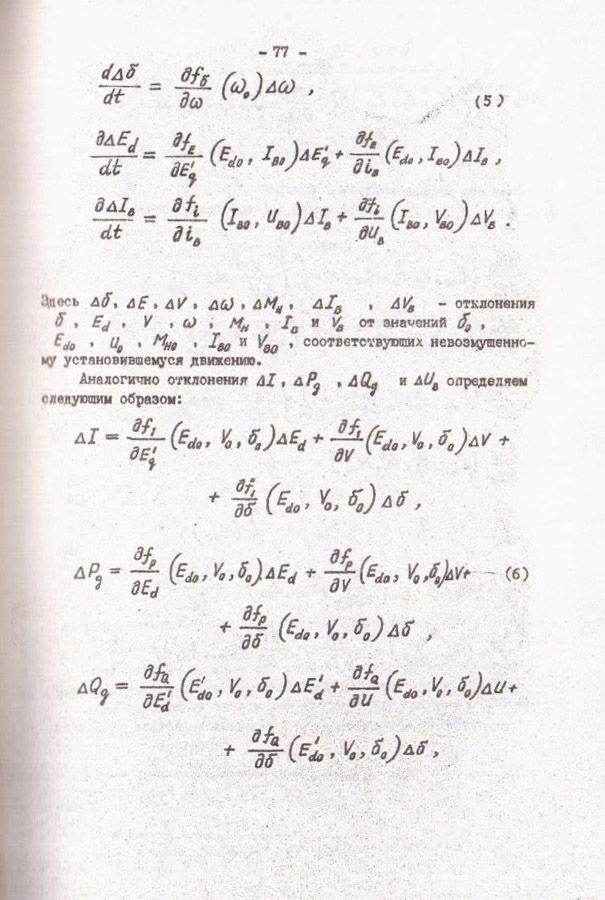 - 77 -
dΔδ/dt = ∂f_δ/∂ω (ω₀)Δω ,
(5)
∂ΔE_d/dt = ∂f_E/∂E'_q (E_do, I_во)ΔE'_q + ∂f_E/∂i_в (E_do, I_во)ΔI_в ,
∂ΔI_в/dt = ∂f_i/∂i_в (I_во, U_во)ΔI_в + ∂f_i/∂U_в (I_во, V_во)ΔV_в .
Здесь Δδ, ΔE, ΔV, Δω, ΔM_н, ΔI_в , ΔV_в - отклонения
δ , E_d , V , ω , M_н , I_в и V_в от значений δ₀ ,
E_do , U₀ , M_но , I_во и V_во , соответствующих невозмущенно-
му установившемуся движению.
Аналогично отклонения ΔI, ΔP_g , ΔQ_g и ΔU_в определяем
следующим образом:
ΔI = ∂f₁/∂E'_q (E_do, V₀, δ₀)ΔE_d + ∂f₁/∂V (E_do, V₀, δ₀)ΔV +
+ ∂f₁/∂δ (E_do, V₀, δ₀)Δδ ,
ΔP_g = ∂f_p/∂E_d (E_do, V₀, δ₀)ΔE_d + ∂f_p/∂V (E_do, V₀, δ₀)ΔV+ (6)
+ ∂f_p/∂δ (E_do, V₀, δ₀)Δδ ,
ΔQ_g = ∂f_Q/∂E'_d (E'_do, V₀, δ₀)ΔE'_d + ∂f_Q/∂U (E_do, V₀, δ₀)ΔU+
+ ∂f_Q/∂δ (E'_do, V₀, δ₀)Δδ ,